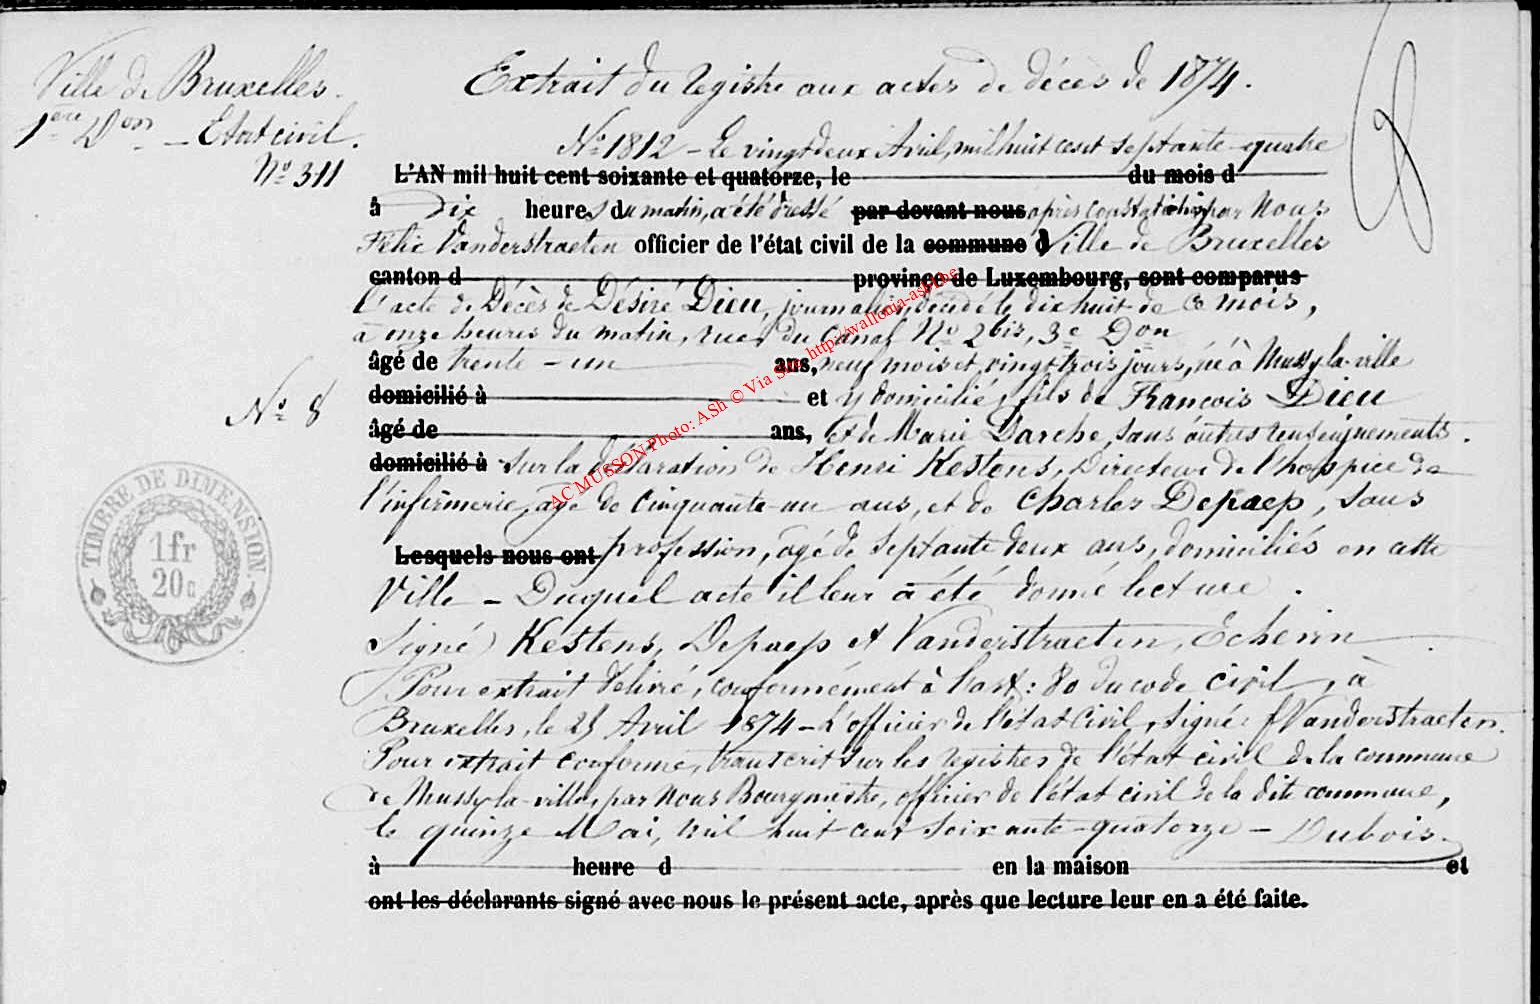 Ville de Bruxelles.
1ère Don – Etat civil.
No 311
Extrait du registre aux actes de décès de 1874.
No 1812 – Le vingt deux Avril, mil huit cent septante-quatre
L'AN mil huit cent soixante et quatorze, le du mois d
à Dix heures du matin, a été dressé par devant nous après constatation, par Nous
Félix Vanderstraeten officier de l'état civil de la commune d Ville de Bruxelles
canton d province de Luxembourg, sont comparus
l'acte de Décès de Désiré Dieu, journalier, décédé le dix huit de ce mois,
à onze heures du matin, rue du Canal No 2bis, 3e Don
âgé de trente-un ans, neuf mois et vingt trois jours, né à Mussy-la-ville
domicilié à et y domicilié, fils de François Dieu
No 8
âgé de ans, et de Marie Darche, sans autres renseignements.
domicilié à Sur la déclaration de Henri Kestens, Directeur de l'hospice de
l'infirmerie, âgé de cinquante-un ans, et de Charles Depaep, sans
Lesquels nous ont profession, âgé de septante deux ans, domiciliés en cette
Ville – Duquel acte il leur a été donné lecture.
Signé) Kestens, Depaep et Vanderstraeten, Echevin
Pour extrait délivré, conformément à l'art: 80 du code civil, à
Bruxelles, le Avril 1874 – L'officier de l'état Civil, Signé: f Vanderstraeten.
Pour extrait conforme, transcrit sur les registres de l'état civil de la commune
de Mussy-la-ville, par Nous Bourgmestre, officier de l'état civil de la dite commune,
le quinze Mai, mil huit cent soixante-quatorze – Dubois.
à heure d en la maison et
ont les déclarants signé avec nous le présent acte, après que lecture leur en a été faite.
TIMBRE DE DIMENSION.
1fr
20c
AC MUSSON Photo: ASh © Via Site http://wallonia-asbl.be